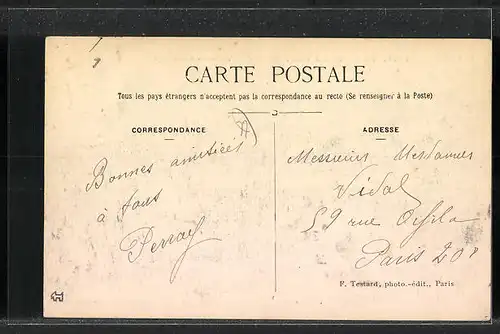 CARTE POSTALE
Tous les pays étrangers n'acceptent pas la correspondance au recto (Se renseigner à la Poste)
CORRESPONDANCE
ADRESSE
Bonnes amitiées
à tous
Perray
Messieurs Mesdames
Vidal
59 rue Orfila
Paris 20e
F. Testard, photo.-édit., Paris